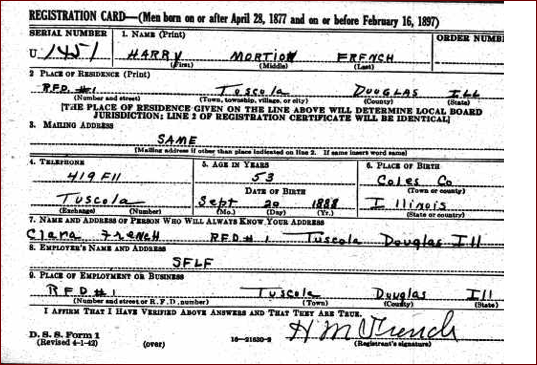 REGISTRATION CARD—(Men born on or after April 28, 1877 and on or before February 16, 1897)
SERIAL NUMBER 1. NAME (Print) ORDER NUMBE
U 1451 HARRY MORTION FRENCH
(First) (Middle) (Last)
2. PLACE OF RESIDENCE (Print)
R.F.D. #1 Tuscola Douglas Ill
(Number and street) (Town, township, village, or city) (County) (State)
[THE PLACE OF RESIDENCE GIVEN ON THE LINE ABOVE WILL DETERMINE LOCAL BOARD
JURISDICTION; LINE 2 OF REGISTRATION CERTIFICATE WILL BE IDENTICAL]
3. MAILING ADDRESS
SAME
[Mailing address if other than place indicated on line 2. If same insert word same]
4. TELEPHONE 5. AGE IN YEARS 6. PLACE OF BIRTH
419 F11 53 Coles Co
DATE OF BIRTH (Town or county)
Tuscola Sept 20 1888 Illinois
(Exchange) (Number) (Mo.) (Day) (Yr.) (State or country)
7. NAME AND ADDRESS OF PERSON WHO WILL ALWAYS KNOW YOUR ADDRESS
Clara French R.F.D # 1 Tuscola Douglas Ill
8. EMPLOYER'S NAME AND ADDRESS
SELF
9. PLACE OF EMPLOYMENT OR BUSINESS
R F D #1 Tuscola Douglas Ill
(Number and street or R. F. D. number) (Town) (County) (State)
I AFFIRM THAT I HAVE VERIFIED ABOVE ANSWERS AND THAT THEY ARE TRUE.
D. S. S. Form 1 H M French
(Revised 4-1-42) (over) 16—21630-2 (Registrant's signature)